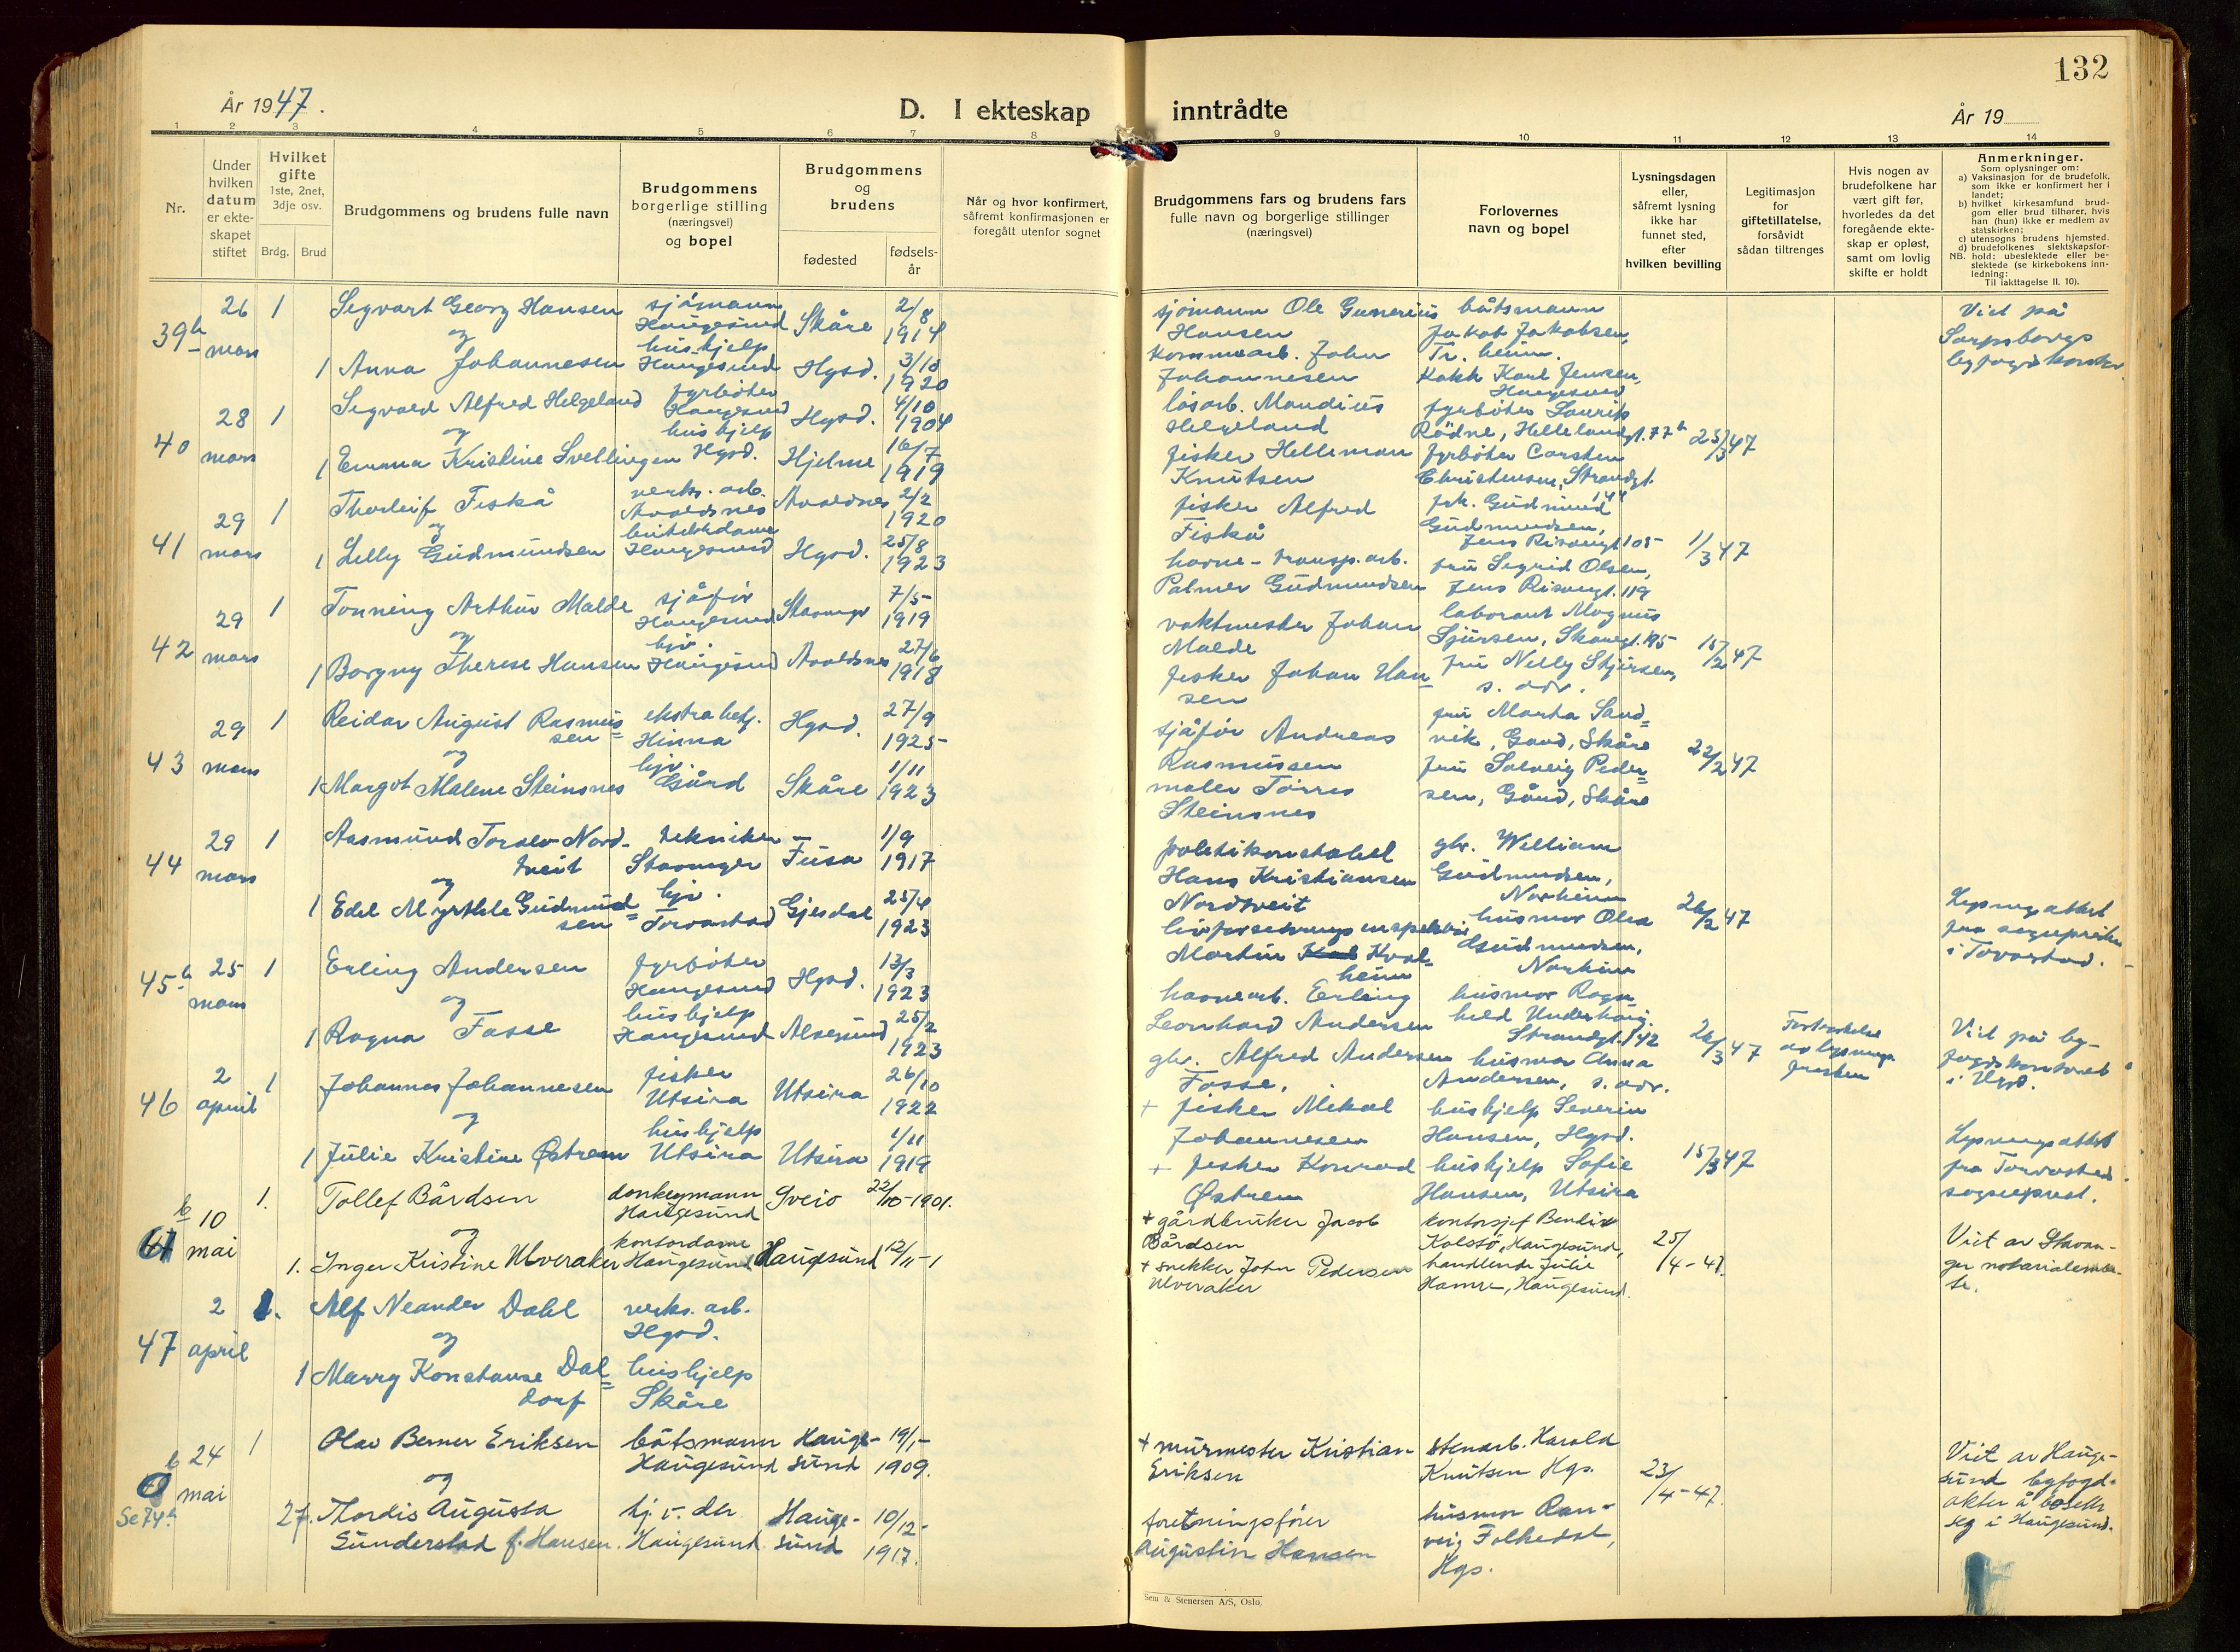 132
År 1947.
D. I ekteskap inntrådte
År 19
1 2 3 4 5 6 7 8 9 10 11 12 13 14
Nr.
Under hvilken datum er ekteskapet stiftet
Hvilket gifte 1ste, 2net, 3dje osv.
Brdg. Brud
Brudgommens og brudens fulle navn
Brudgommens borgerlige stilling (næringsvei) og bopel
Brudgommens og brudens
fødested
fødselsår
Når og hvor konfirmert, såfremt konfirmasjonen er foregått utenfor sognet
Brudgommens fars og brudens fars fulle navn og borgerlige stillinger (næringsvei)
Forlovernes navn og bopel
Lysningsdagen eller, såfremt lysning ikke har funnet sted, efter hvilken bevilling
Legitimasjon for giftetillatelse, forsåvidt sådan tiltrenges
Hvis nogen av brudefolkene har vært gift før, hvorledes da det foregående ekteskap er opløst, samt om lovlig skifte er holdt
Anmerkninger.
Som oplysninger om:
a) Vaksinasjon for de brudefolk, som ikke er konfirmert her i landet;
b) hvilket kirkesamfund brudgom eller brud tilhører, hvis han (hun) ikke er medlem av statskirken;
c) utensogns brudens hjemsted.
d) brudefolkenes slektskapsforhold: ubeslektede eller beslektede (se kirkebokens innledning:
NB.
Til iakttagelse II. 10).
39b 26 mars 1 Sigvart Georg Hansen sjømann Haugesund Skåre 2/8 1914
og
1 Anna Johannesen hushjelp Haugesund Hgsd. 1920
sjømann Ole Gunerius Hansen
Johan Johannesen
båtsmann Jakob Jakobsen,
kokk Karl Jensen, Haugesund
Viet på Sarpsborgs
40 28 mars 1 Sigvald Alfred Helgeland fyrbøter Haugesund Hgsd. 4/10 1904
og
1 Emma Kristine Svellingen hushjelp Hgsd. Hjelme 16/7 1919
løsarb. Mandius Helgeland
fisker Helleman Knutsen
fyrbøter Laurits Rødne, Hellelandgt. 77b
fyrbøter Carsten Christensen, Strandgt.
23/3 47
41 29 mars 1 Thorleif Fiskå verks. arb. Avaldsnes Avaldsnes 2/2 1920
og
1 Lilly Gudmundsen Haugesund Hgsd. 25/8 1923
fisker Alfred Fiskå
havne-transp. arb. Palmer Gudmundsen
Gudmund Gudmundsen, Jens Risøengt 105
fru Sigrid Olsen, Jens Risøengt. 119
1/3 47
42 29 mars 1 Tonning Arthur Malde sjåfør Haugesund Stavanger 7/5 1919
og
1 Borgny Therese Hansen hjv. Haugesund Avaldsnes 27/6 1918
vaktmester Johan Malde
fisker Johan Hansen
laborant Magnus Sjursen, Skåregt. 195
fru Nelly Sjursen, s. adr.
15/2 47
43 29 mars 1 Reidar August Rasmussen ekstrabetj. Hinna Hgsd. 27/9 1925
og
1 Margot Malene Steinsnes hjv. Gård Skåre 1/11 1923
sjåfør Andreas Rasmussen
maler Torres Steinsnes
fru Marta Sandvik, Gård, Skåre
fru Solveig Pedersen, Gård, Skåre
22/2 47
44 29 mars 1 Aasmund Torolv Nordtveit tekniker Stavanger Fusa 1/9 1917
og
1 Edel Myrthle Gudmundsen hjv. Torvastad Gjesdal 25/4 1923
politikonstabel Hans Kristiansen Nordtveit
livforsikringsinspektør Martin Kvalheim
gbr. William Gudmundsen, Norheim
husmor Olea Gudmundsen, Norheim
26/2 47
Lysningsattest fra sognepresten i Torvastad.
45b 25 mars 1 Erling Andersen fyrbøter Haugesund Hgsd. 13/3 1923
og
1 Ragna Fosse hushjelp Haugesund Alversund 25/2 1923
havnearb. Erling Leonhard Andersen
gbr. Alfred Andersen Fosse,
husmor Ragnhild Underhaug. Strandgt. 142
husmor Anna Andersen, s. adr.
26/3 47
av lysnings fristen
Viet på byfogdkontoret i Hgsd.
46 2 april 1 Johannes Johannesen fisker Utsira Utsira 26/10 1922
og
1 Julie Kristine Østrem hushjelp Utsira Utsira 1/11 1919
+ fisker Mikal Johannesen
+ fisker Konrad Østrem
hushjelp Severin Hansen, Hgsd.
hushjelp Sofie Hansen, Utsira
15/3 47
Lysningsattest fra Torvastad sogneprest.
b 10 mai 1. Tollef Bårdsen donkeymann Haugesund Sveio 22/10-1901.
og
1. Inger Kristine Ulveraker kontordame Haugesund Haugesund 12/11-1
+ gårdbruker Jacob Bårdsen
+ snekker John Pedersen Ulveraker
kontorsjef Bendix Kolstø, Haugesund,
handlende Julie Hamre, Haugesund.
25/4-47.
Viet av Stavanger notarialembete.
47 2 april 1. Alf Neander Dahl verks. arb. Hgsd.
og
1 Marry Konstanse Daldorf hushjelp Skåre
b 24 mai 1 Olav Berner Eriksen båtsmann Haugesund Haugesund 19/1-1909.
og
Se 74b.
2 f. Thordis Augusta Sunderstad f. Hansen. hj. v. der Haugesund Haugesund 10/12-1917.
+ murmester Kristian Eriksen
foretningsfører Augustin Hansen
stenarb. Harald Knutsen Hgs.
husmor Ranveig Folkedal, Hgs.
23/4-47.
Viet av Haugesund byfogd. akter å bosette seg i Haugesund.
Sem & Stenersen A/S, Oslo.